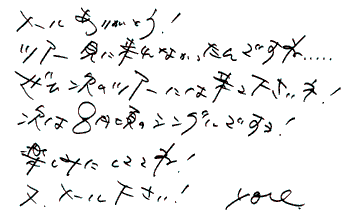 メールありがとう!
ツアー見に来れなかったんですね.....
ぜひ次のツアーには来て下さいネ!
次は8月頃のシングルですよ!
楽しみにしててネ!
又、メール下さい!